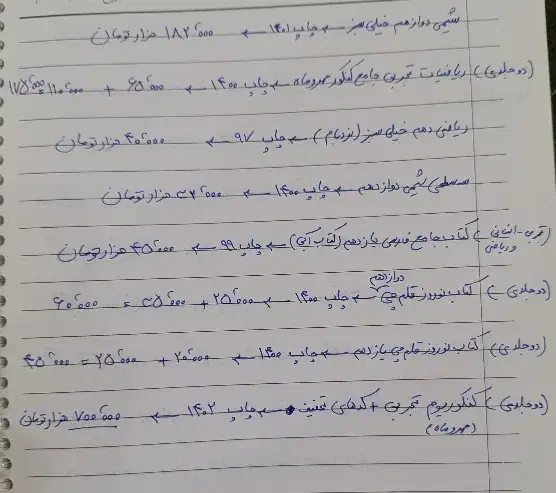 شیمی دوازدهم خیلی سبز ← چاپ ۱۴۰۱ ← ۱۸۲٬۰۰۰ هزار تومان
(دو جلدی) ریاضیات تجربی جامع کنکور مهروماه ← چاپ ۱۴۰۰ ← ۶۵٬۰۰۰ + ۱۱۰٬۰۰۰ = ۱۷۵٬۰۰۰
ریاضی دهم خیلی سبز ← چاپ ۹۷ ← ۴۰٬۰۰۰ هزار تومان
سه سطحی شیمی دوازدهم ← چاپ ۱۴۰۰ ← هزار تومان
(تجربی - انسانی و ریاضی) کتاب جامع فارسی یازدهم (کتاب آبی) ← چاپ ۹۹ ← ۴۵٬۰۰۰ هزار تومان
(دو جلدی) کتاب نوروز قلم چی دوازدهم ← چاپ ۱۴۰۰ ← ۲۵٬۰۰۰ + ۳۵٬۰۰۰ = ۶۰٬۰۰۰
(دو جلدی) کتاب نوروز قلم چی یازدهم ← چاپ ۱۴۰۰ ← ۲۰٬۰۰۰ + ۲۵٬۰۰۰ = ۴۵٬۰۰۰
(دو جلدی) کنکوریوم تجربی + کدهای تخفیف ← چاپ ۱۴۰۲ ← ۷۰۰٬۰۰۰ هزار تومان
(مهروماه)